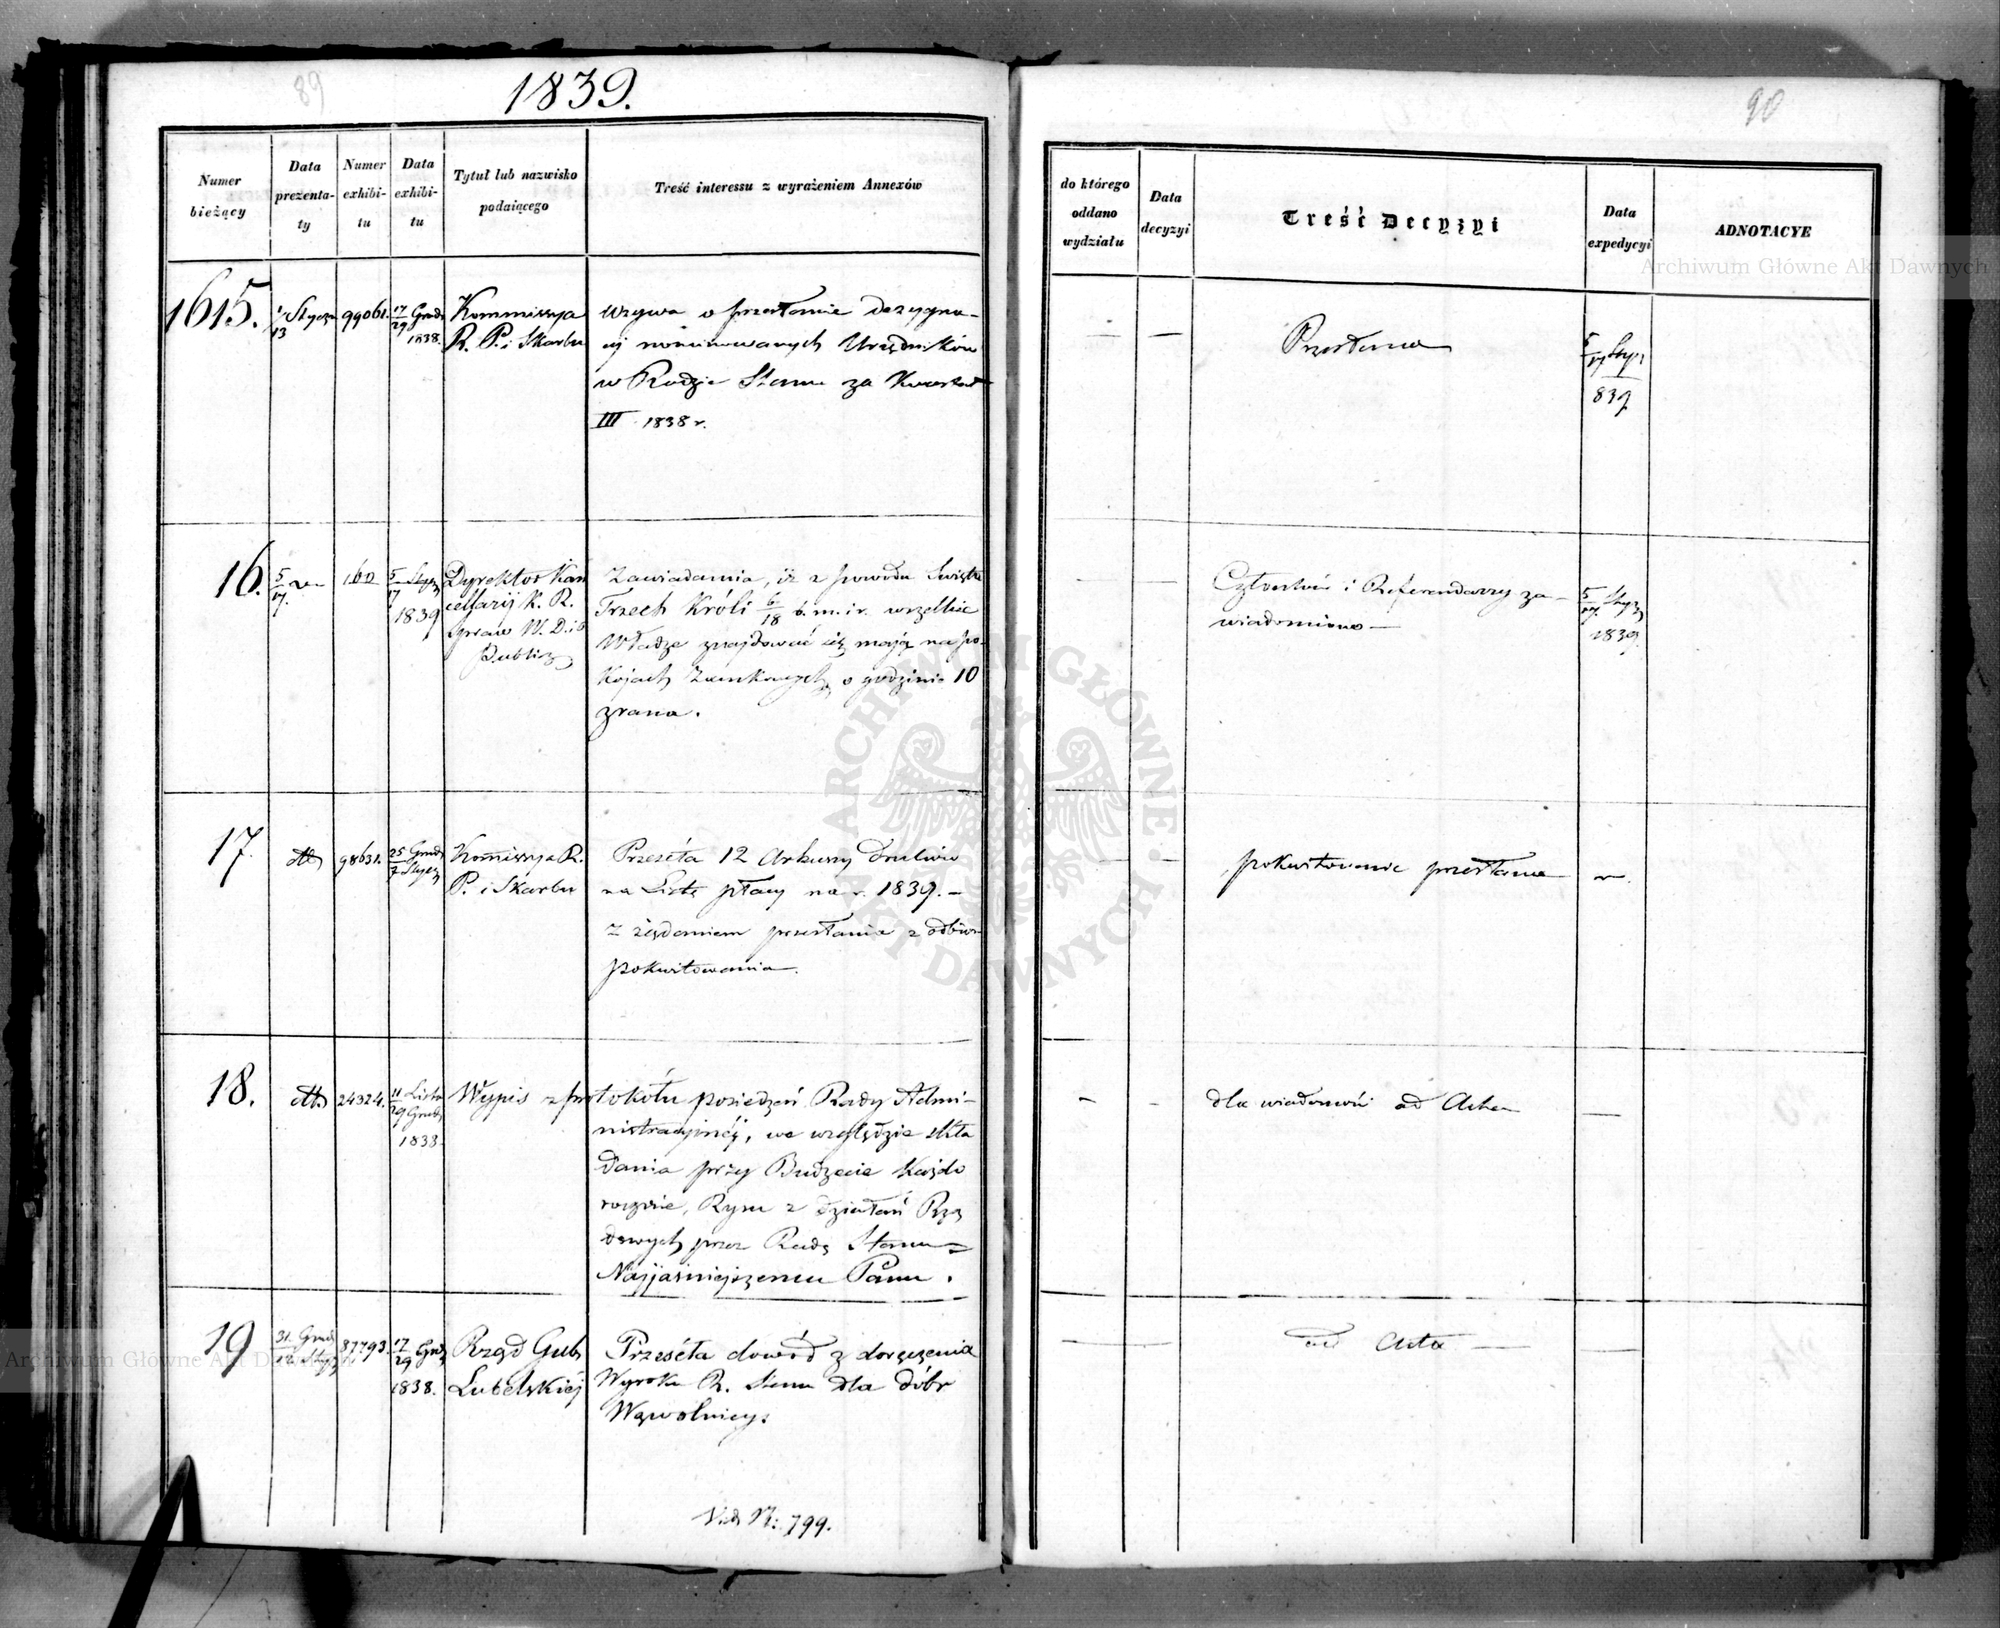 89
1839.
Numer
bieżący
Data
prezenta-
ty
Numer
exhibi-
tu
Data
exhibi-
tu
Tytuł lub nazwisko
podaiącego
Treść interessu z wyrażeniem Annexów
1615.
1/13 Stycz
99061.
17/29 Grud
1838.
Kommissya
R. P. i Skarbu
Wzywa o przesłanie dezygna-
cij nominowanych Urzędników
w Radzie Stanu za Kwartał
III 1838 r.
16.
5/17
160
5/17 Stycz
1839
Dyrektor Kan
cellarij K. R.
Spraw W. D. i O
Publicz
Zawiadamia, iż z powodu Święta
Trzech Króli 6/18 b. m. i r. wszelkie
Władze znajdować się mają na po-
kojach Zamkowych o godzinie 10
zrana.
17.
dtto
98631.
25 Grud
7 Stycz
Kommissya R.
P. i Skarbu
Przeséła 12 Arkuszy druków
na Listę płacy na r. 1839. –
z żądaniem przesłania z odbioru
pokwitowania.
18.
dtto
24324.
11 Listo
29 Grud
1838
Wypis z protokółu posiedzeń Rady Admi-
nistracyjnéj, we względzie skła
dania przy Budżecie każdo
rocznie, Rysu z działań Rzą
dowych przez Radę Stanu
Najjaśniejszemu Panu.
19
31. Grud
12 Stycz
87793.
17/29 Grud
1838.
Rząd Gub.
Lubelskiéj
Przeséła dowód z doręczenia
Wyroku R. Stanu dla dóbr
Wąwolnicy.
Vide N: 799.
90
do którego
oddano
wydziału
Data
decyzyi
Treść Decyzyi
Data
expedycyi
ADNOTACYE
— —
Przesłano
5/17 Stycz
839
— —
Członków i Referendarzy za-
wiadomiono —
5/17 Stycz
1839.
— —
pokwitowanie przesłane
— —
dla wiadomości ad Acta
—
— —
ad Acta —
—
Archiwum Główne Akt Dawnych
Archiwum Główne Akt Dawnych
ARCHIWUM GŁÓWNE · AKT DAWNYCH ·